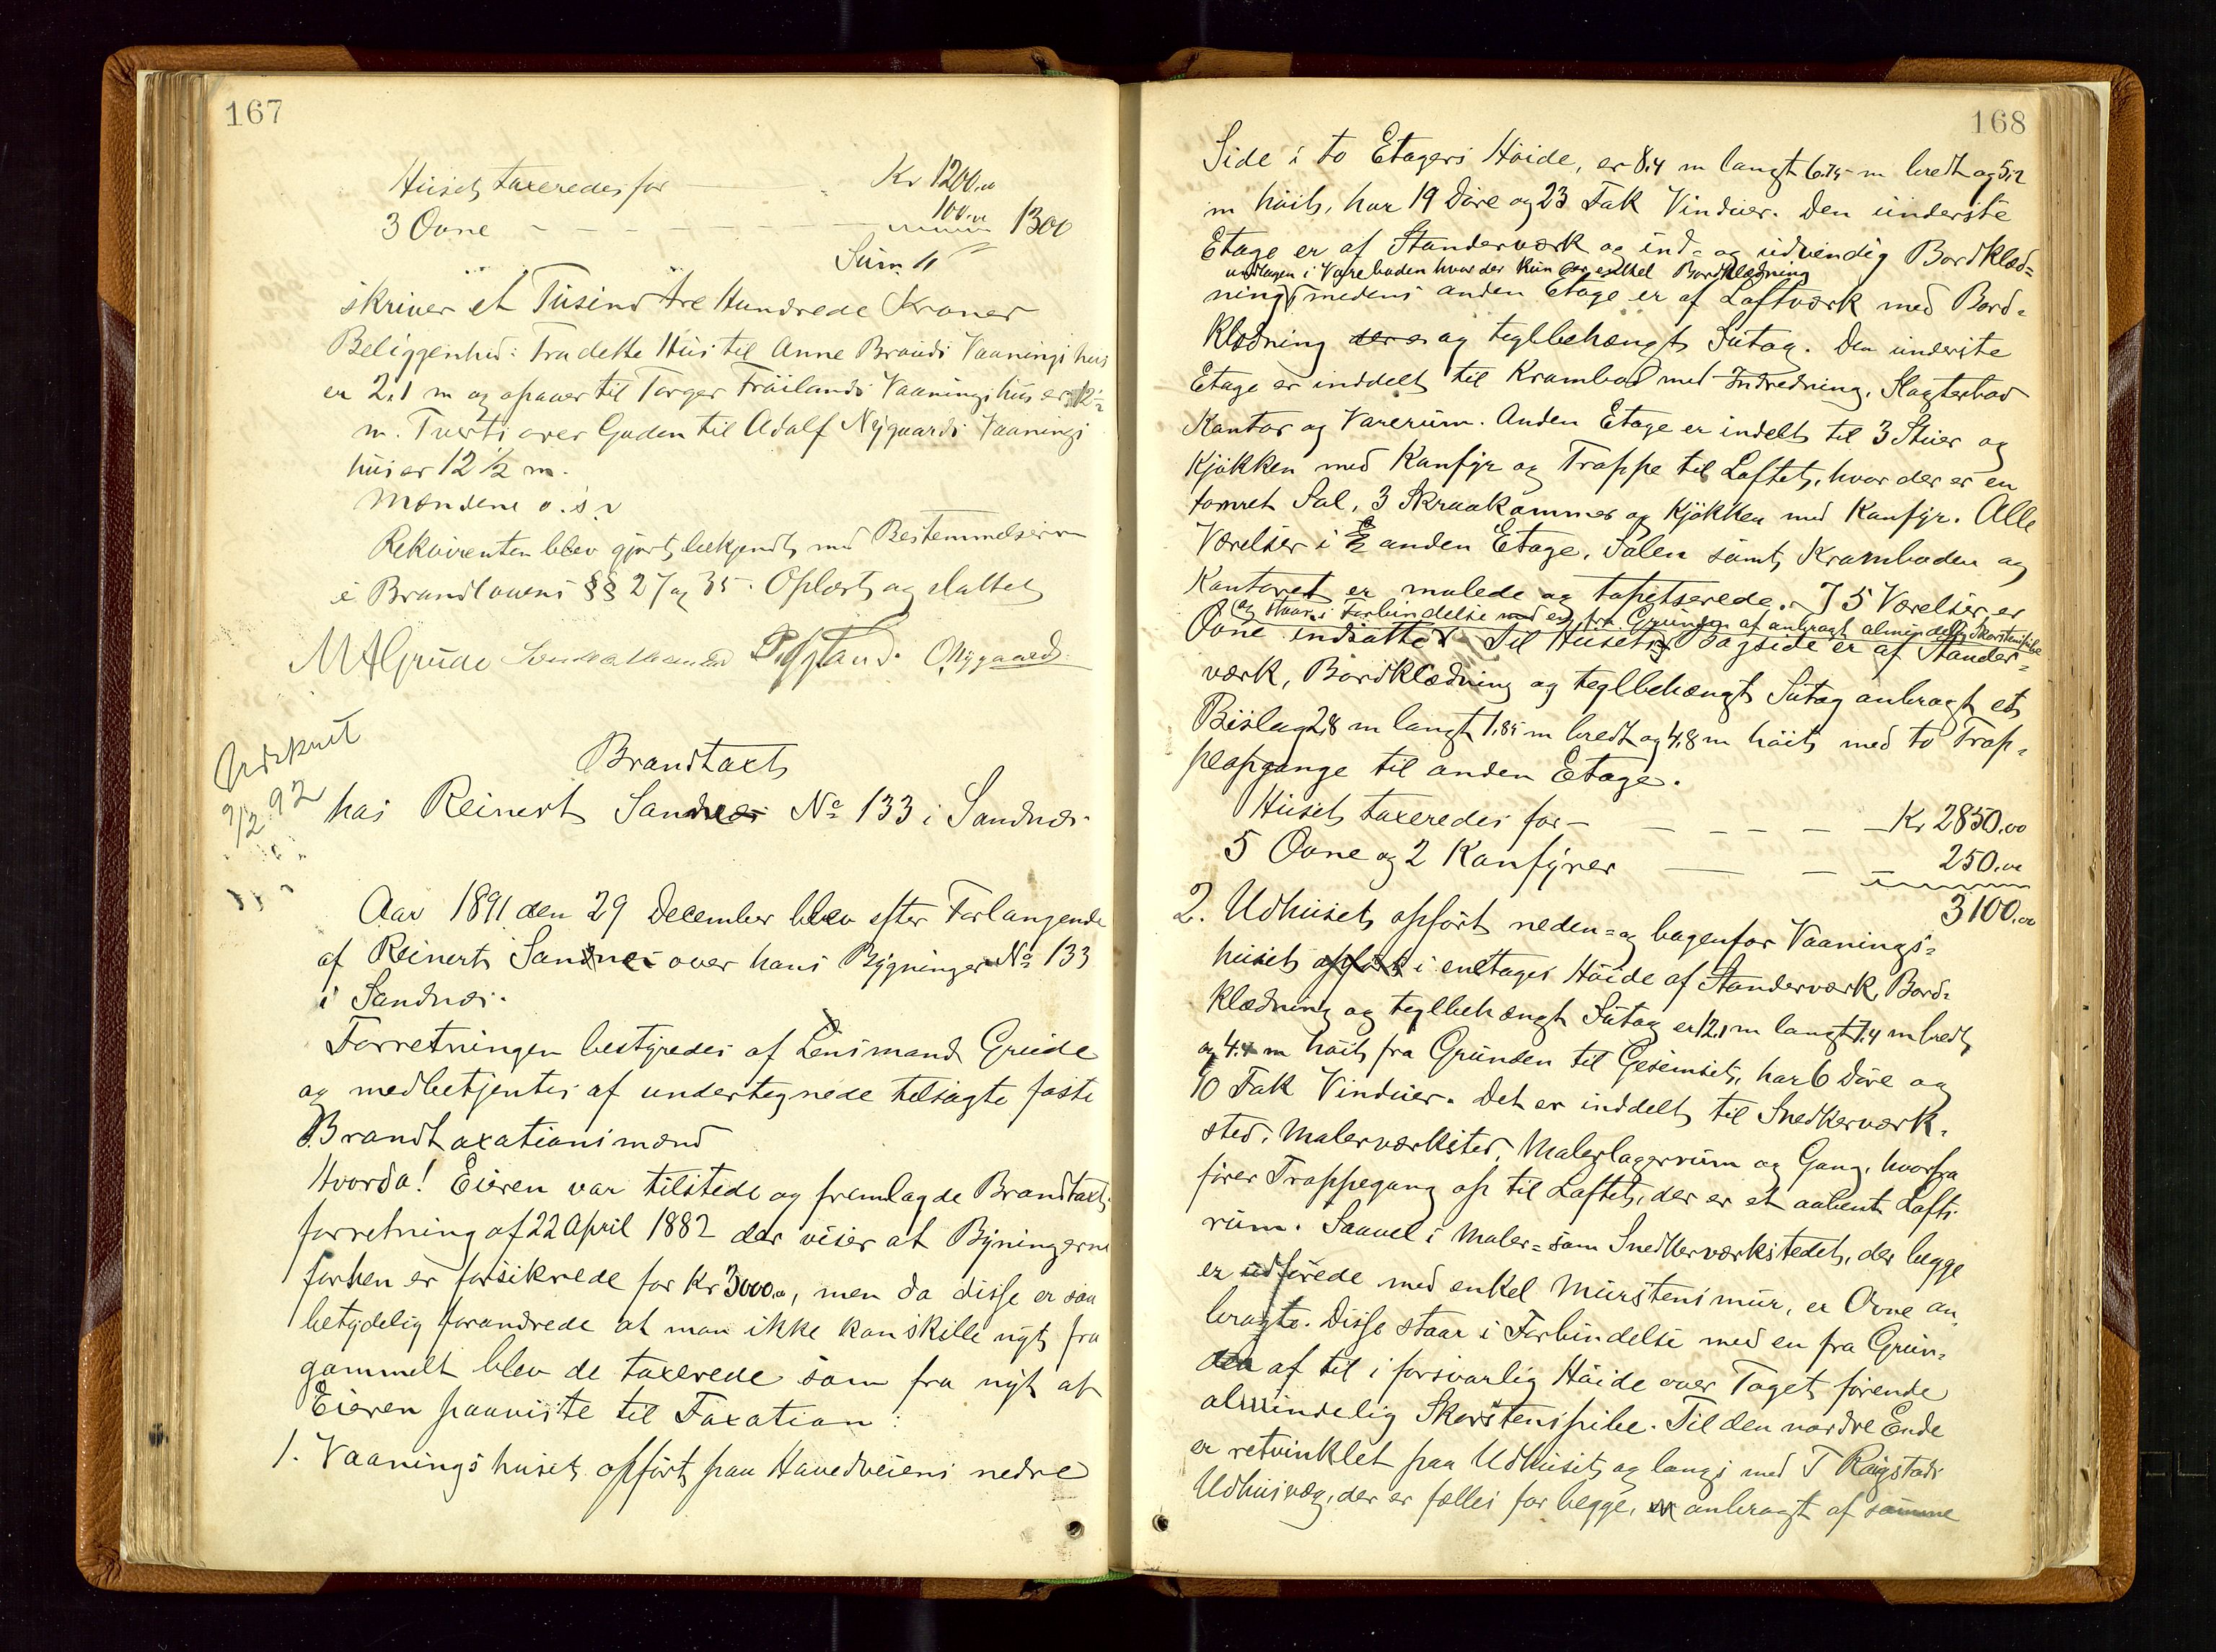 167
Huset taxeredes for — Kr 1200.00
3 Ovne - - - - - - - 100.00 1300
Sum
skriver et Tusind tre Hundrede Kroner
Beliggenhed: Fra dette Hus til Anne Brauds Vaaningshus
er 2,1 m og opover til Torger Fröilands Vaaningshus er 12½
m. Tverts over Gaden til Adolf Nygaards Vaanings
hus er 12 ½ m.
Mændene o.s.v
Rekvirenten blev gjort bekjendt med Bestemmelserne
i Brandlovens §§ 27 og 35. Oplæst og sluttet
M A Grude O. Nygaard.
Udskrevet
9/2 92
Brandtaxt
hos Reinert Sandnes No 133 i Sandnes.
Aar 1891 den 29 December blev efter Forlangende
af Reinert Sandnes over hans Bygninger No 133
i Sandnes.
Forretningen bestyredes af Lensmand Grude
og medbetjentes af undertegnede tilsagte faste
Brandtaxationsmænd
Hvorda! Eieren var tilstede og fremlagde Brandtaxt
forretning af 22 April 1882 der viser at Bygningerne
forhen er forsikrede for Kr 3000.00, men da disse er saa
betydelig forandrede at man ikke kan skille nyt fra
gammelt blev de taxerede som fra nyt af
Eieren paaviste til Taxation:
1. Vaaningshuset opført paa Hovedveiens nedre
168
Side i to Etagers Høide, er 8,4 m langt 6.75 m bredt og 5,2
m høit, har 19 Døre og 23 Fak Vinduer. Den underste
Etage er af Standerværk og ind- og udvendig Bordklæd-
undtagen i Vareboden hvor der kun er enkel Bordklædning
ning, medens anden Etage er af Laftværk med Bord-
klædning og teglbehængt Sutag. Den underste
Etage er inddelt til Krambod med Indredning, Slagterbod
Kontor og Varerum. Anden Etage er indelt til 3 Stuer og
Kjøkken med Komfyr og Trappe til Loftet, hvor der er en
tømret Sal, 3 Skraakammer og Kjøkken med Komfyr. Alle
Værelser i anden Etage, Salen samt Kramboden og
Kontoret er malede og tapetserede. I 5 Værelser er
og staar i Forbindelse med en fra Grunden af anbragt almindelig Skorstenspibe
Ovne indsatte. Til Husets Bagside er af Stander-
værk, Bordklædning og teglbehængt Sutag anbragt et
Bislag 2,8 m langt 1.85 m bredt og 4,8 m høit med to Trap-
peopgange til anden Etage.
Huset taxeredes for — Kr 2850.00
5 Ovne og 2 Komfyrer — 250.00
3100.00
2. Udhuset opført neden- og bagenfor Vaanings-
huset i en Etages Høide af Standerværk, Bord-
klædning og teglbehængt Sutag er 12,1 m langt 7.4 m bredt
og 4.4 m høit fra Grunden til Gesimset, har 6 Døre og
10 Fak Vinduer. Det er inddelt til Snedkerværk-
sted, Malerværksted, Malerlagerrum og Gang, hvorfra
fører Trappegang op til Loftet, der er et aabent Lofts-
rum. Saavel i Maler- som Snedkerværkstedet, der begge
er udforede med enkel Murstensmur, er Ovne an-
bragte. Disse staar i Forbindelse med en fra Grun-
den af til i forsvarlig Høide over Taget førende
almindelig Skorstenspibe. Til den nordre Ende
er retvinklet paa Udhuset og langs med T Raigstads
Udhusvæg, der er fælles for begge, anbragt af samme